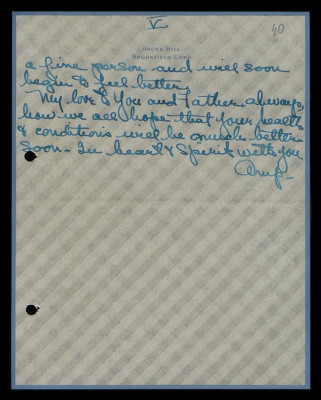 V
40
BRUSH HILL
BROOKFIELD, CONN.
a fine person and will soon
begin to feel better,
My love to you and Father, always,
how we all hope that your health
& conditions will be much better
soon - In heart & Spirit with you